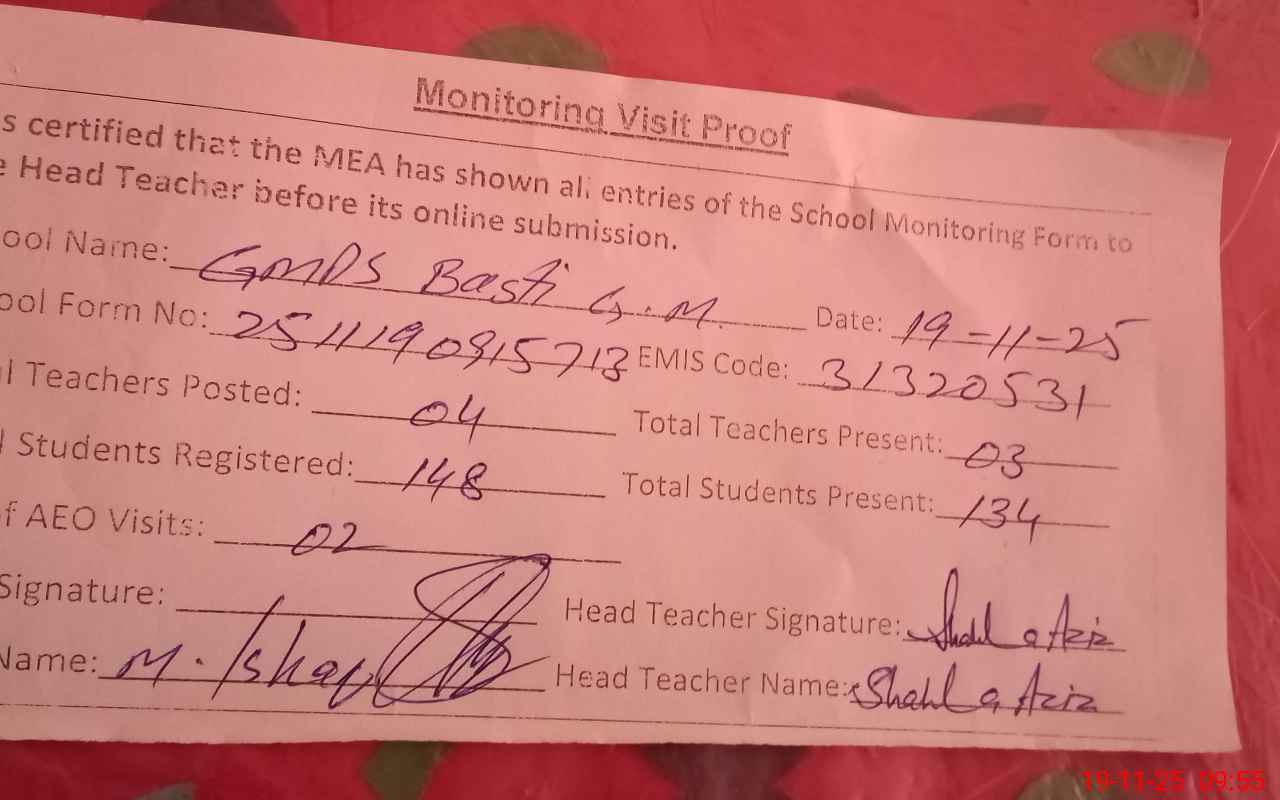 Monitoring Visit Proof
s certified that the MEA has shown all entries of the School Monitoring Form to
e Head Teacher before its online submission.
ool Name: GMPS Basti G.M. Date: 19-11-25
ool Form No: 2511190915713 EMIS Code: 31320531
l Teachers Posted: 04 Total Teachers Present: 03
l Students Registered: 148 Total Students Present: 134
f AEO Visits: 02
Signature: Head Teacher Signature: Shahla Aziz
Name: M. Ishaq Head Teacher Name: Shahla Aziz
19-11-25 09:55